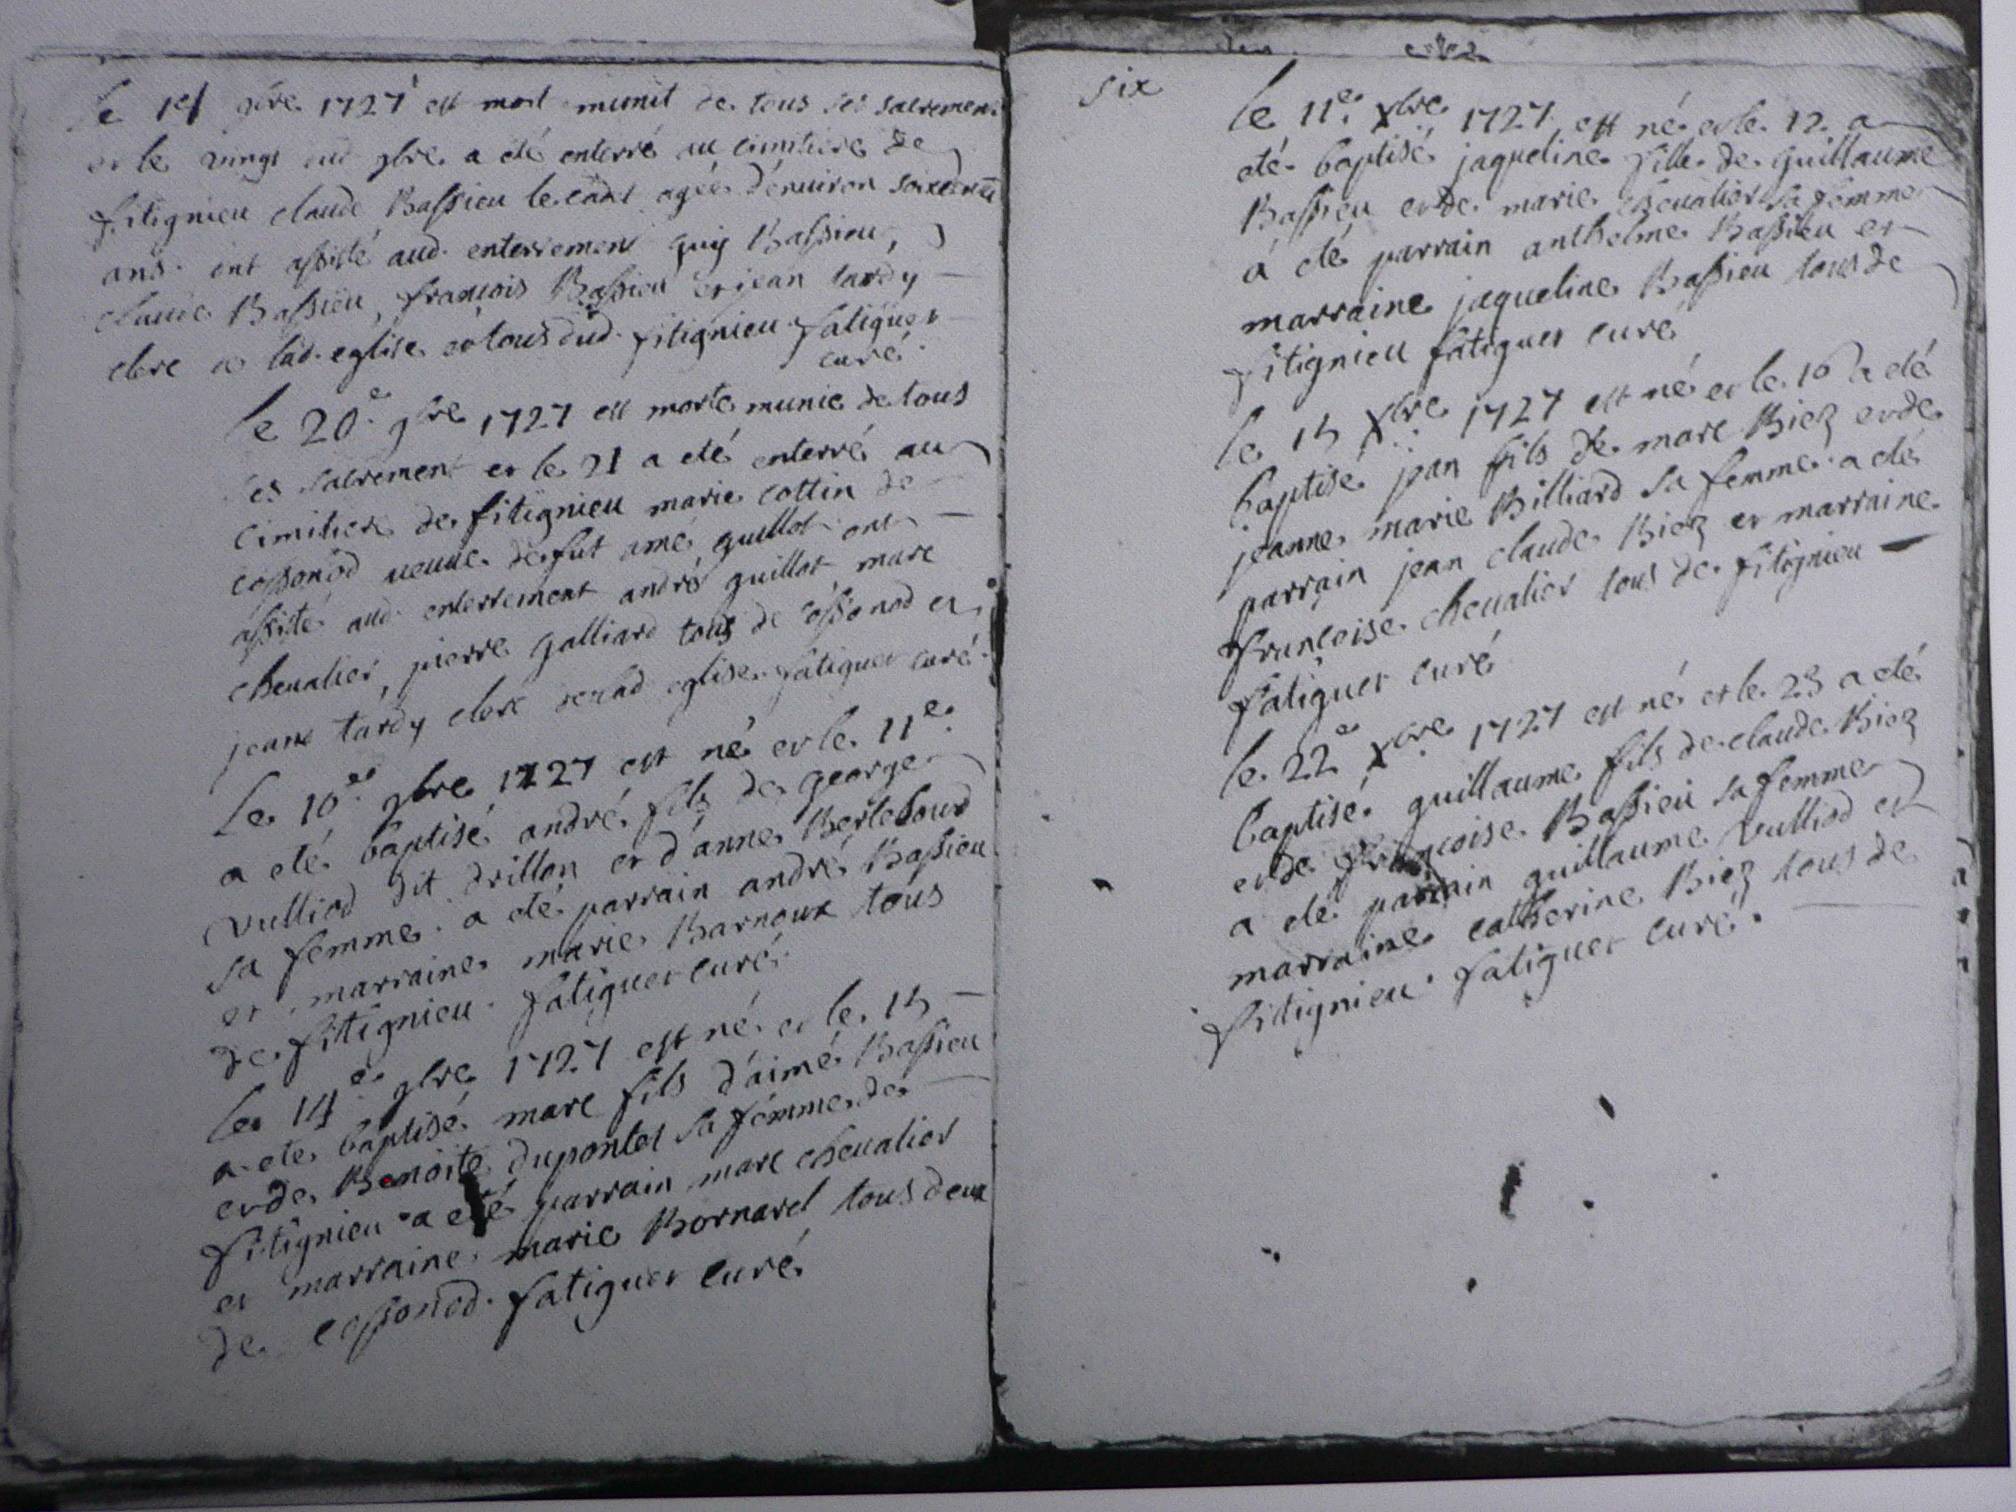 le 19 9bre 1727 est mort munit de tous ses sacrement
et le vingt dud 9bre a été enterré au cimitiere de
fitignieu claude Bassieu le cadet agée d'enuiron soixente
ans. ont assisté aud. enterrement guy Bassieu,
claude Bassieu, francois Bassieu et jean tardy
clerc de lad. eglise et tous dud. fitignieu fatiguet
curé.
le 20e. 9bre 1727 est morte munie de tous
ses sacrement et le 21 a eté enterré au
cimitiere de fitignieu marie cottin de
cossonod ueuue de fut amé guillot ont
assisté aud. enterrement andré guillot marc
cheualier, pierre galliard tous de cossonod et
jean tardy clerc de lad eglise. fatiguet curé.
Le 10e. 9bre 1727 est né et le 11e.
a eté baptisé andré fils de george
Vulliod dit drillon et d'anne Berlebourd
sa femme. a eté parrain andré Bassieu
et marraine marie Barnoux tous
de fitignieu. fatiguet curé.
Le 14e. 9bre 1727 est né et le 15
a eté baptisé marc fils d'aimé Bassieu
et de Benoite dupontet sa femme de
fitignieu a eté parrain marc cheualier
et marraine marie Bornarel tous deux
de cossonod. fatiguet curé
six
le 11e. Xbre 1727 est né et le 12 a
eté baptisé jaqueline fille de guillaume
Bassieu et de marie cheualier sa femme
a eté parrain anthelme Bassieu et
marraine jaqueline Bassieu tous de
fitignieu fatiguet curé
le 15 Xbre 1727 est né et le 16 a eté
baptisé jean fils de marc Biez et de
jeanne marie Billiard sa femme. a eté
parrain jean claude Biez et marraine
francoise cheualier tous de fitignieu
fatiguet curé
le 22e Xbre 1727 est né et le 23 a eté
baptisé guillaume fils de claude Biez
et de francoise Bassieu sa femme
a eté parrain guillaume Vulliod et
marraine catherine Biez tous de
fitignieu. fatiguet curé.